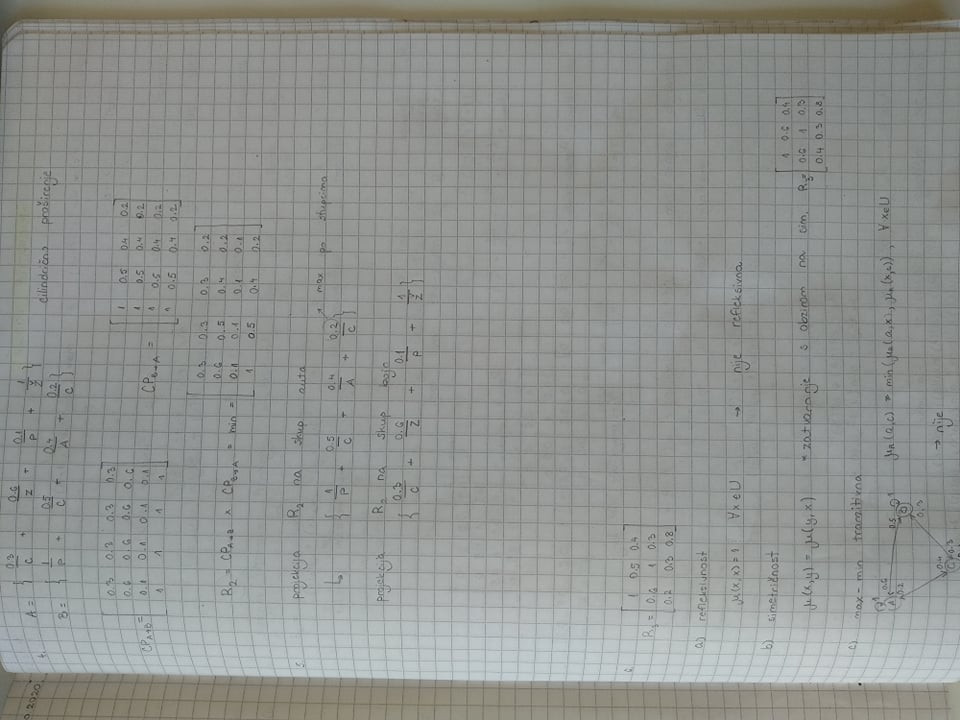 0.2020.
4. A = { 0.3/C + 0.6/Z + 0.1/P + 1/Z }
B = { 1/P + 0.5/C + 0.4/A + 0.2/C }
cilindrično proširenje
CP A→B = [ 0.3 0.3 0.3 0.3
0.6 0.6 0.6 0.6
0.1 0.1 0.1 0.1
1 1 1 1 ]
CP B→A = [ 1 0.5 0.4 0.2
1 0.5 0.4 0.2
1 0.5 0.4 0.2
1 0.5 0.4 0.2 ]
R2 = CP A→B x CP B→A = min = [ 0.3 0.3 0.3 0.2
0.6 0.5 0.4 0.2
0.1 0.1 0.1 0.1
1 0.5 0.4 0.2 ]
5. projekcija R2 na skup auta
↳ { 1/P + 0.5/C + 0.4/A + 0.2/C } ↗ max po stupcima
projekcija R2 na skup boja
{ 0.3/C + 0.6/Z + 0.1/P + 1/Z }
6. R3 = [ 1 0.5 0.4
0.6 1 0.3
0.2 0.3 0.8 ]
a) refleksivnost
μ(x,x) = 1 ∀x∈U → nije refleksivna
b) simetričnost
μ(x,y) = μ(y,x) * zatvaranje s obzirom na sim. R3s [ 1 0.6 0.4
0.6 1 0.3
0.4 0.3 0.8 ]
c) max-min tranzitivna
μR(a,c) ≥ min(μR(a,x), μR(x,c)), ∀x∈U
→ nije
1 A 0.6 0.2
0.5 B 1
0.3
0.4 C 0.3